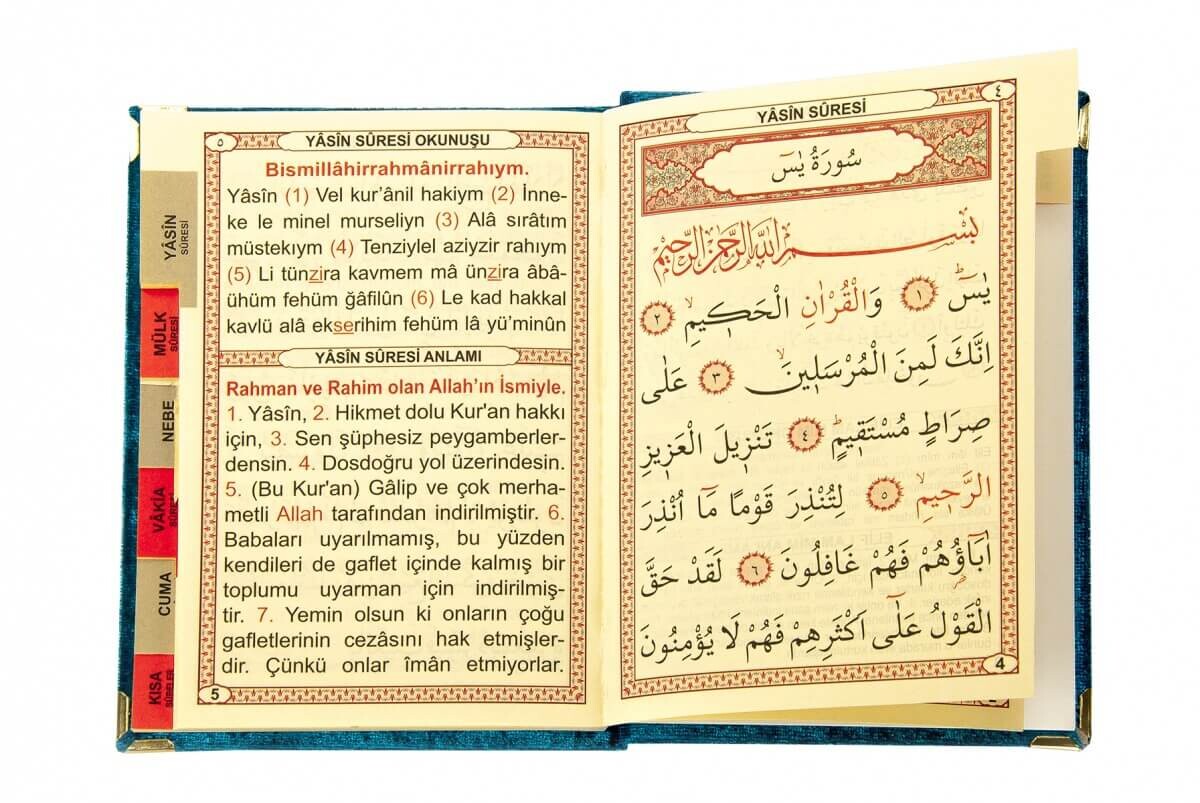 YÂSÎN SÛRESİ
٤
سُورَةُ يٰسٓ
بِسْمِ اللّٰهِ الرَّحْمٰنِ الرَّحِيْمِ
يٰسٓ ۚ ﴿١﴾ وَالْقُرْاٰنِ الْحَكِيمِ ۙ ﴿٢﴾
اِنَّكَ لَمِنَ الْمُرْسَلِينَ ۙ ﴿٣﴾ عَلٰى
صِرَاطٍ مُسْتَقِيمٍ ۜ ﴿٤﴾ تَنْزِيلَ الْعَزِيزِ
الرَّحِيمِ ۙ ﴿٥﴾ لِتُنْذِرَ قَوْمًا مَٓا اُنْذِرَ
اٰبَٓاؤُ۬هُمْ فَهُمْ غَافِلُونَ ﴿٦﴾ لَقَدْ حَقَّ
الْقَوْلُ عَلٰٓى اَكْثَرِهِمْ فَهُمْ لَا يُؤْمِنُونَ
4
٥
YÂSÎN SÛRESİ OKUNUŞU
Bismillâhirrahmânirrahıym.
Yâsîn (1) Vel kur’ânil hakiym (2) İnne-
ke le minel murseliyn (3) Alâ sırâtım
müstekıym (4) Tenziylel aziyzir rahıym
(5) Li tünzira kavmem mâ ünzira âbâ-
ühüm fehüm ğâfilûn (6) Le kad hakkal
kavlü alâ ekserihim fehüm lâ yü’minûn
YÂSÎN SÛRESİ ANLAMI
Rahman ve Rahim olan Allah’ın İsmiyle.
1. Yâsîn, 2. Hikmet dolu Kur'an hakkı
için, 3. Sen şüphesiz peygamberler-
densin. 4. Dosdoğru yol üzerindesin.
5. (Bu Kur'an) Gâlip ve çok merha-
metli Allah tarafından indirilmiştir. 6.
Babaları uyarılmamış, bu yüzden
kendileri de gaflet içinde kalmış bir
toplumu uyarman için indirilmiş-
tir. 7. Yemin olsun ki onların çoğu
gafletlerinin cezâsını hak etmişler-
dir. Çünkü onlar îmân etmiyorlar.
5
YÂSÎN
SÛRESİ
MÜLK
SÛRESİ
NEBE
VÂKIA
CUMA
KISA
SÛRELER